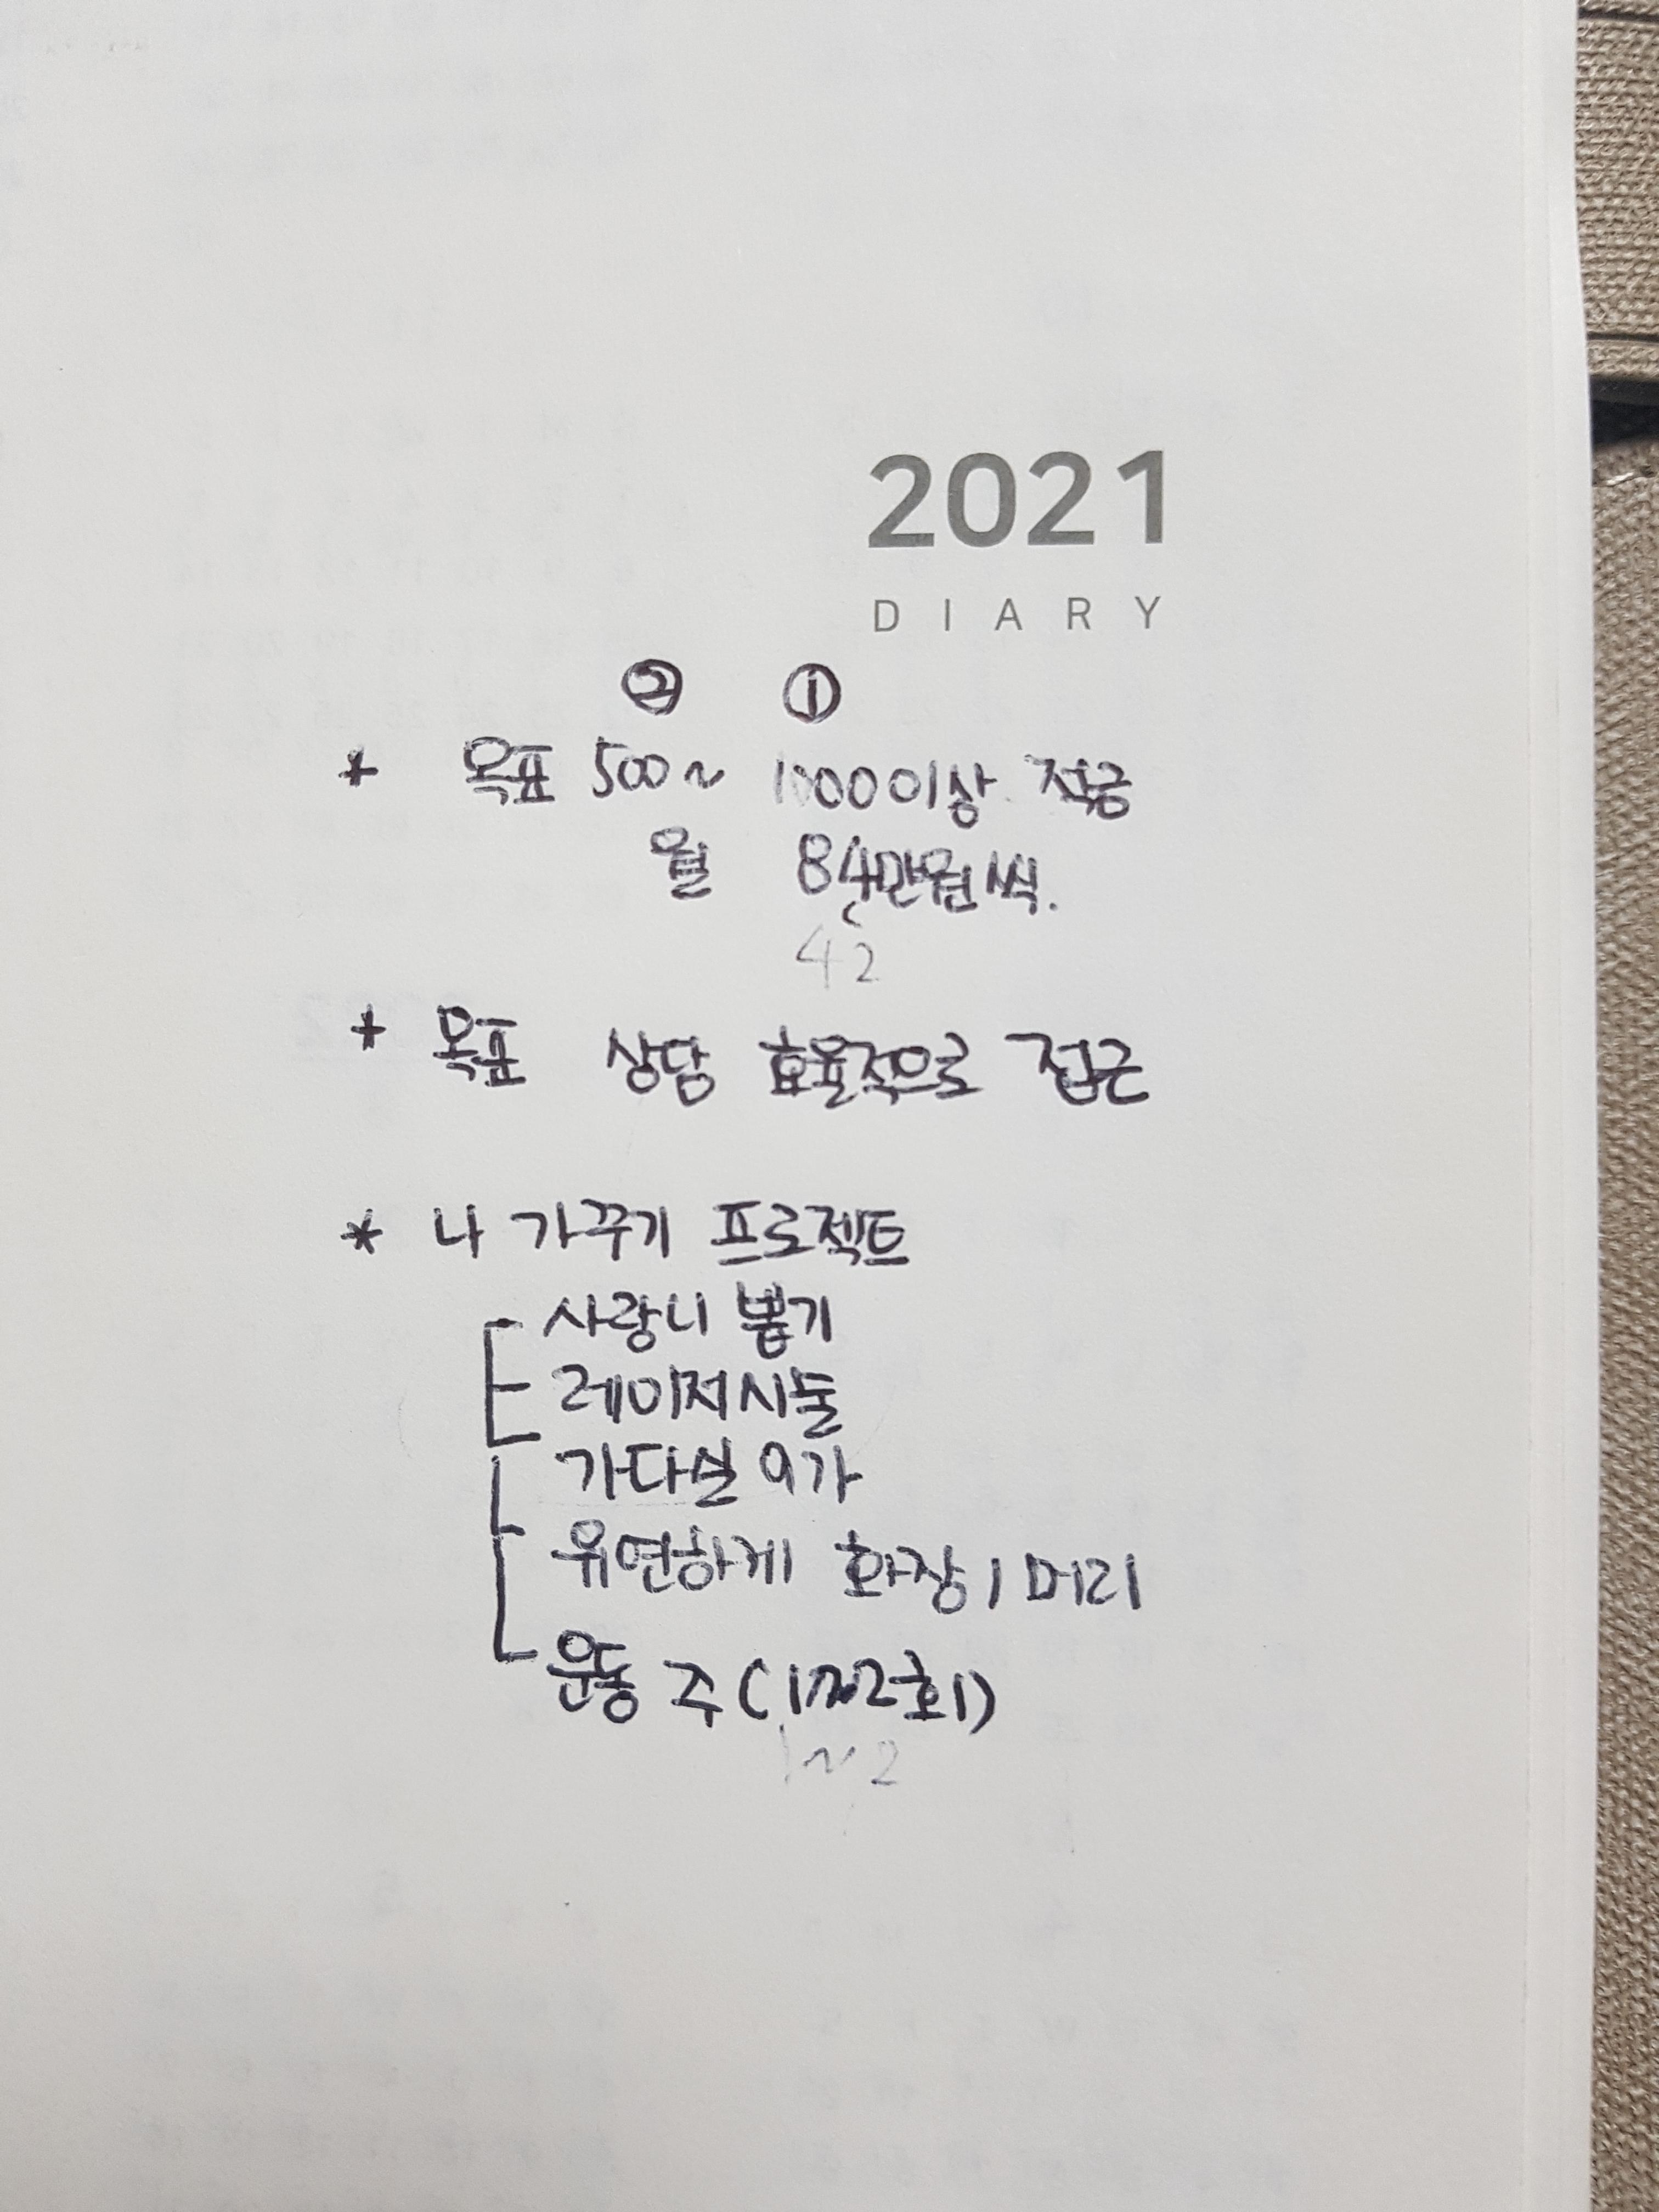 2021
DIARY
② ①
* 목표 500~ 1000이상 적금
월 84만원씩.
42
* 목표 상담 효율적으로 접근
* 나 가꾸기 프로젝트
사랑니 뽑기
레이저시술
가다실 9가
유연하게 화장/머리
운동 주(1~2회)
1~2